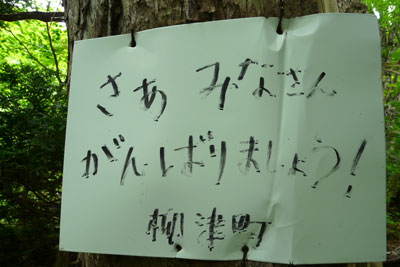 さあ みなさん
がんばりましょう!
柳津町